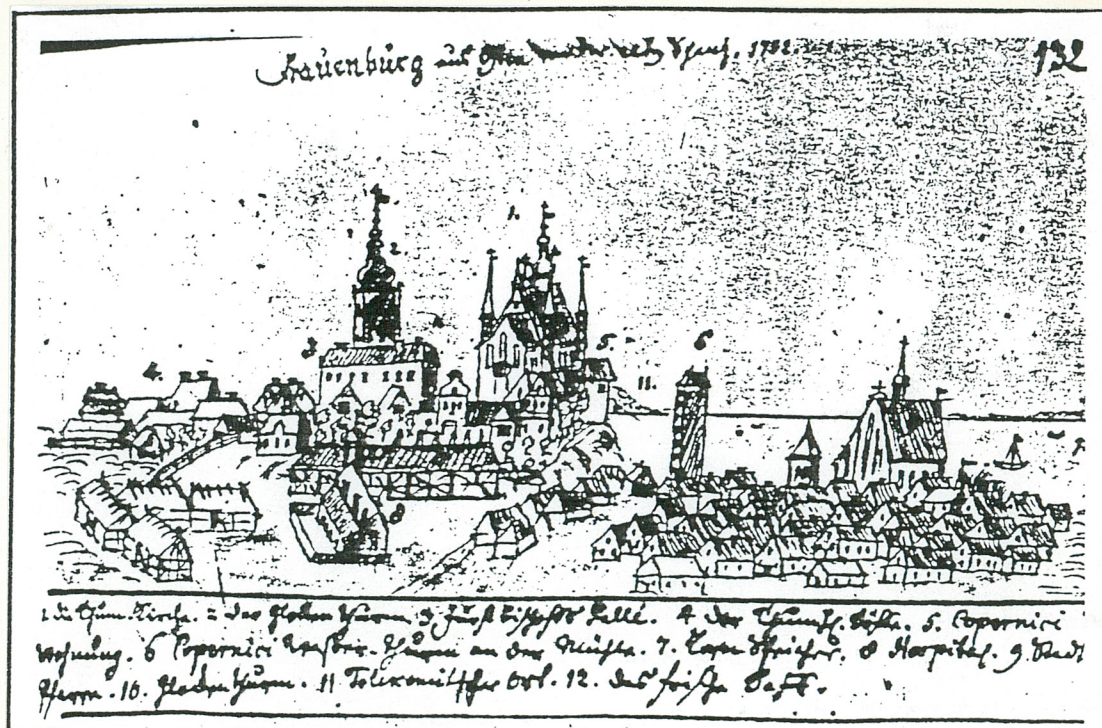 Frauenburg aus 1732.
132
1.
2.
3
4.
5.
6
11.
8
1. die Thum-Kirche. 2 der Gloken Thurm 3. Fürst Bischofs 4 der Thumh. 5. Copernici
Wohnung. 6 Copernici Wasser-Thurm an der Mühle. 7. Korn Speicher. 8 Hospital. 9 Stadt
Pfarre. 10. Gloken Thurm. 11 Tolkemitscher Ort. 12. das frische Haff.